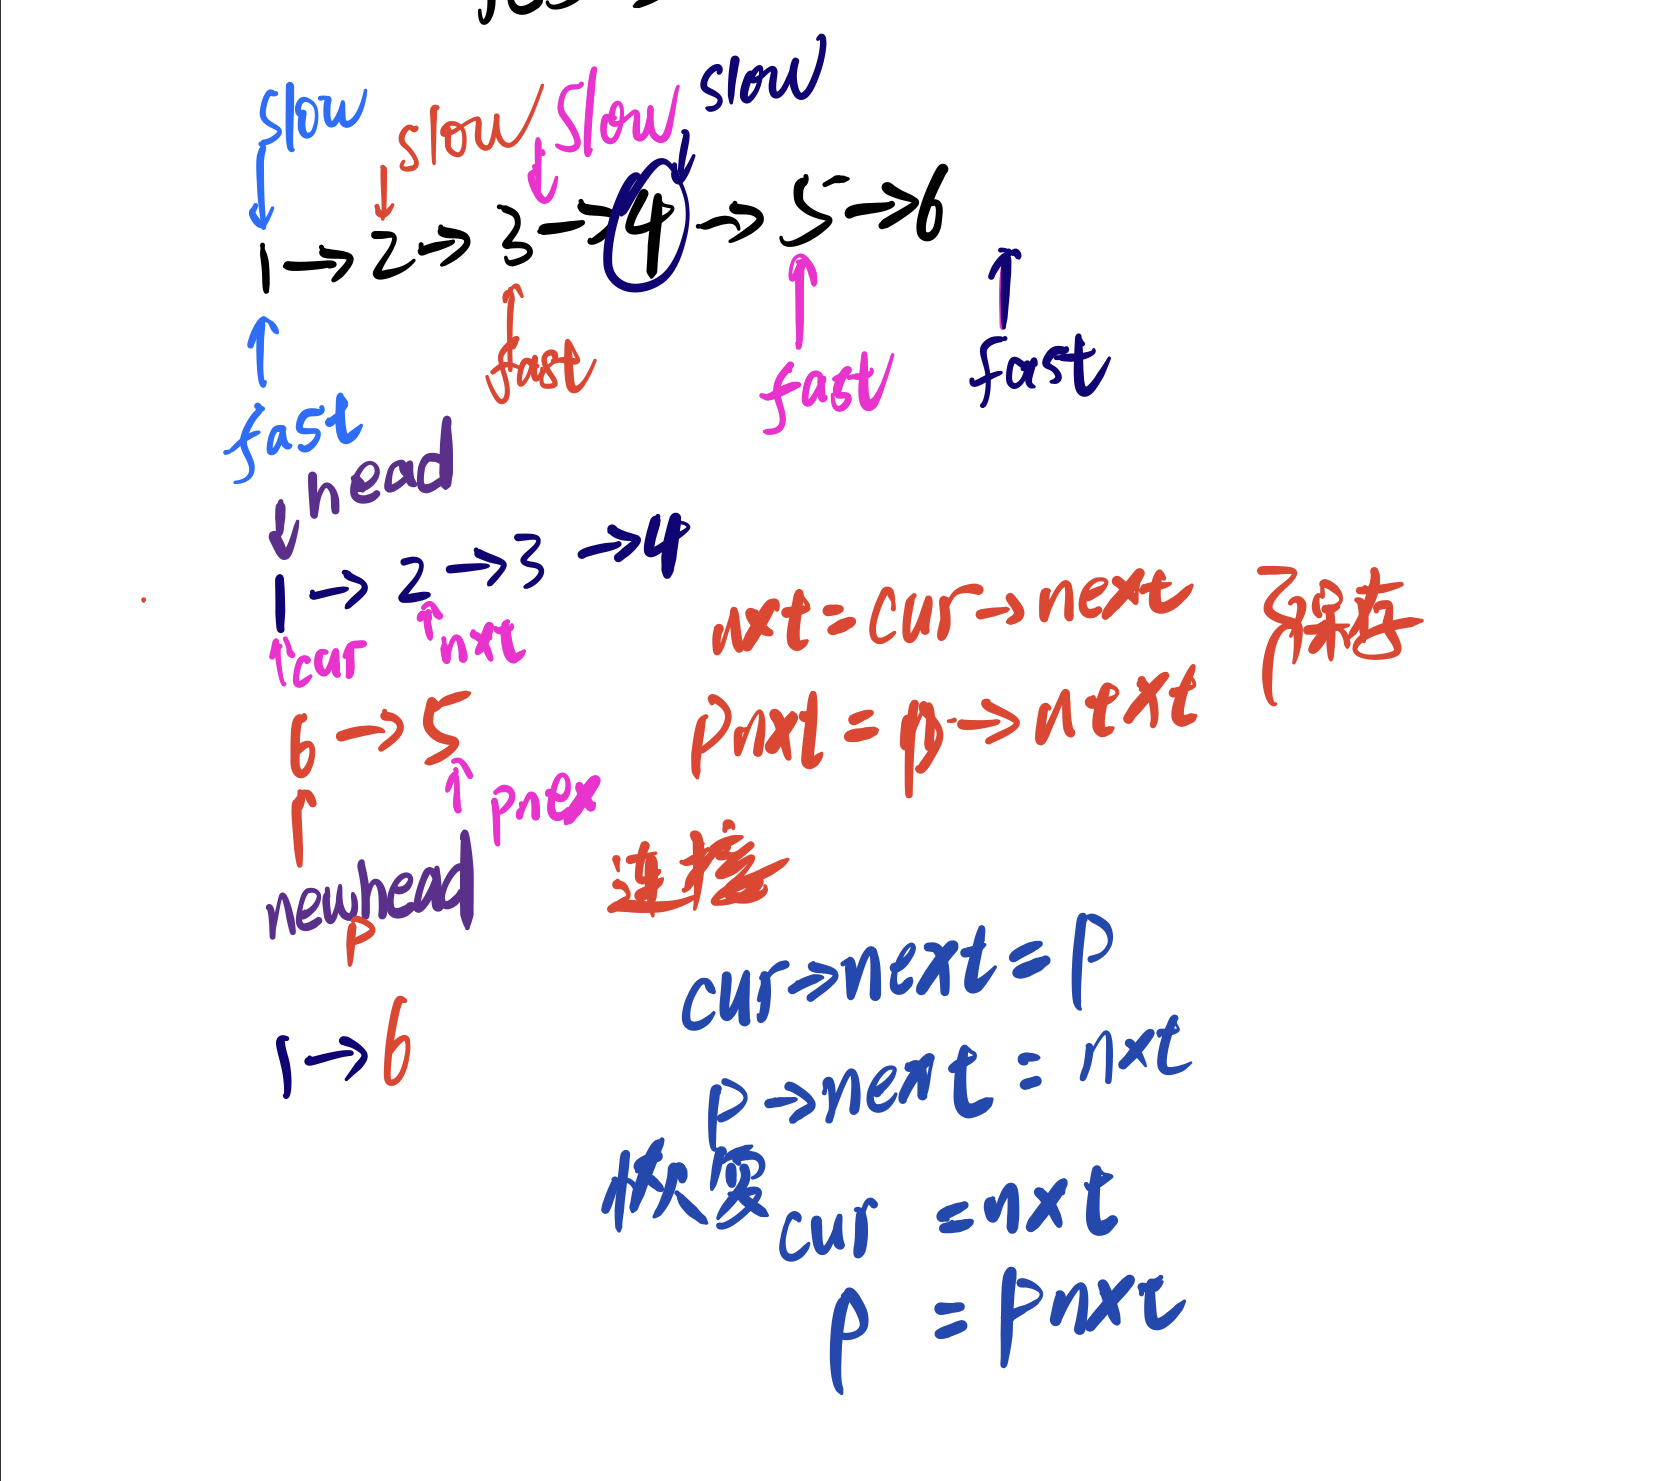 slow slow slow slow
1 → 2 → 3 → 4 → 5 → 6
fast fast fast fast
head
1 → 2 → 3 → 4
cur nxt
nxt = cur → next
保存
6 → 5
pnxt = p → next
pnex
newhead
p
连接
cur → next = p
1 → 6
p → next = nxt
恢复
cur = nxt
p = pnxt